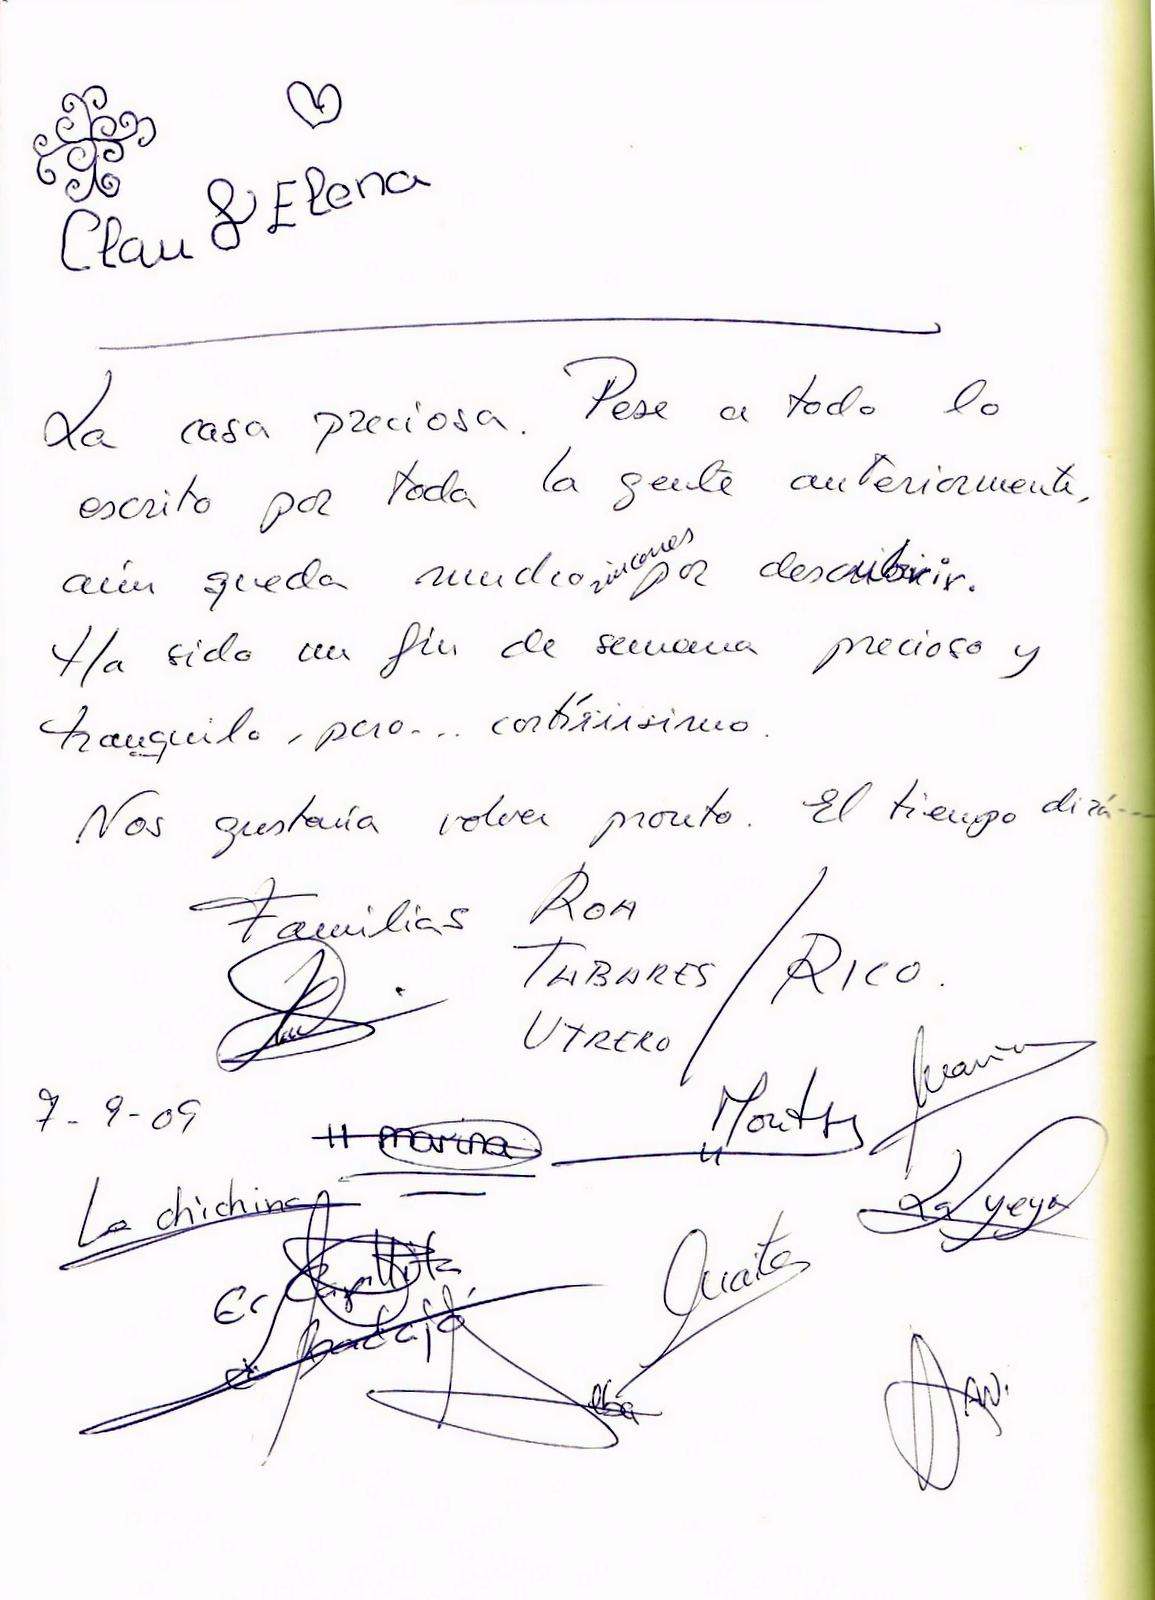 Clau & Elena
La casa preciosa. Pese a todo lo
escrito por toda la gente anteriormente,
aún queda mucho rincones por describir.
Ha sido un fin de semana precioso y
tranquilo, pero... cortíiisimo.
Nos gustaría volver pronto. El tiempo dirá....
Familias ROA
TABARES / RICO.
UTRERO
7-9-09
marina
Montse
Juani
La chichina
La yeya
Alba